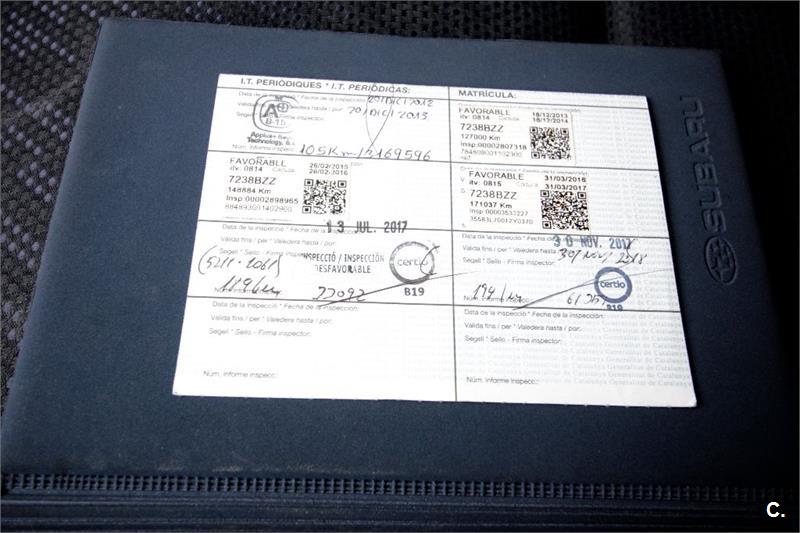 I.T. PERIÒDIQUES * I.T. PERIÓDICAS:
MATRÍCULA:
Data de la inspecció * Fecha de la inspección:
20/DIC/2012
Valedera hasta / por:
20/DIC/2013
A+
B-15
Applus+
Technology,
Núm. informe inspecc.:
105Km
FAVORABLE
18/12/2013
itv: 0814
Caduca
18/12/2014
7238BZZ
127000 Km
Insp:00002807318
FAVORABLE
26/02/2015
itv: 0814
Caduca
26/02/2016
7238BZZ
148884 Km
Insp:00002898965
FAVORABLE
31/03/2016
itv: 0815
Caduca
31/03/2017
7238BZZ
171037 Km
Insp:00003533227
35583L70012Y0370
Data de la inspecció * Fecha de la
13 JUL. 2017
Vàlida fins / per * Valedera hasta / por:
Segell * Sello - Firma inspector:
INSPECCIÓ / INSPECCIÓN
DESFAVORABLE
certio
B19
Data de la inspecció * Fecha de la
30 NOV. 2017
Vàlida fins / per * Valedera hasta / por:
30/NOV/2018
Segell * Sello - Firma inspector:
certio
B19
Núm. informe
Data de la inspecció * Fecha de la inspección:
Vàlida fins / per * Valedera hasta / por:
Segell * Sello - Firma inspector:
Núm. informe inspecc.:
Data de la inspecció * Fecha de la inspección:
Vàlida fins / per * Valedera hasta / por:
Segell * Sello - Firma inspector:
Núm. informe inspecc.:
SUBARU
C.